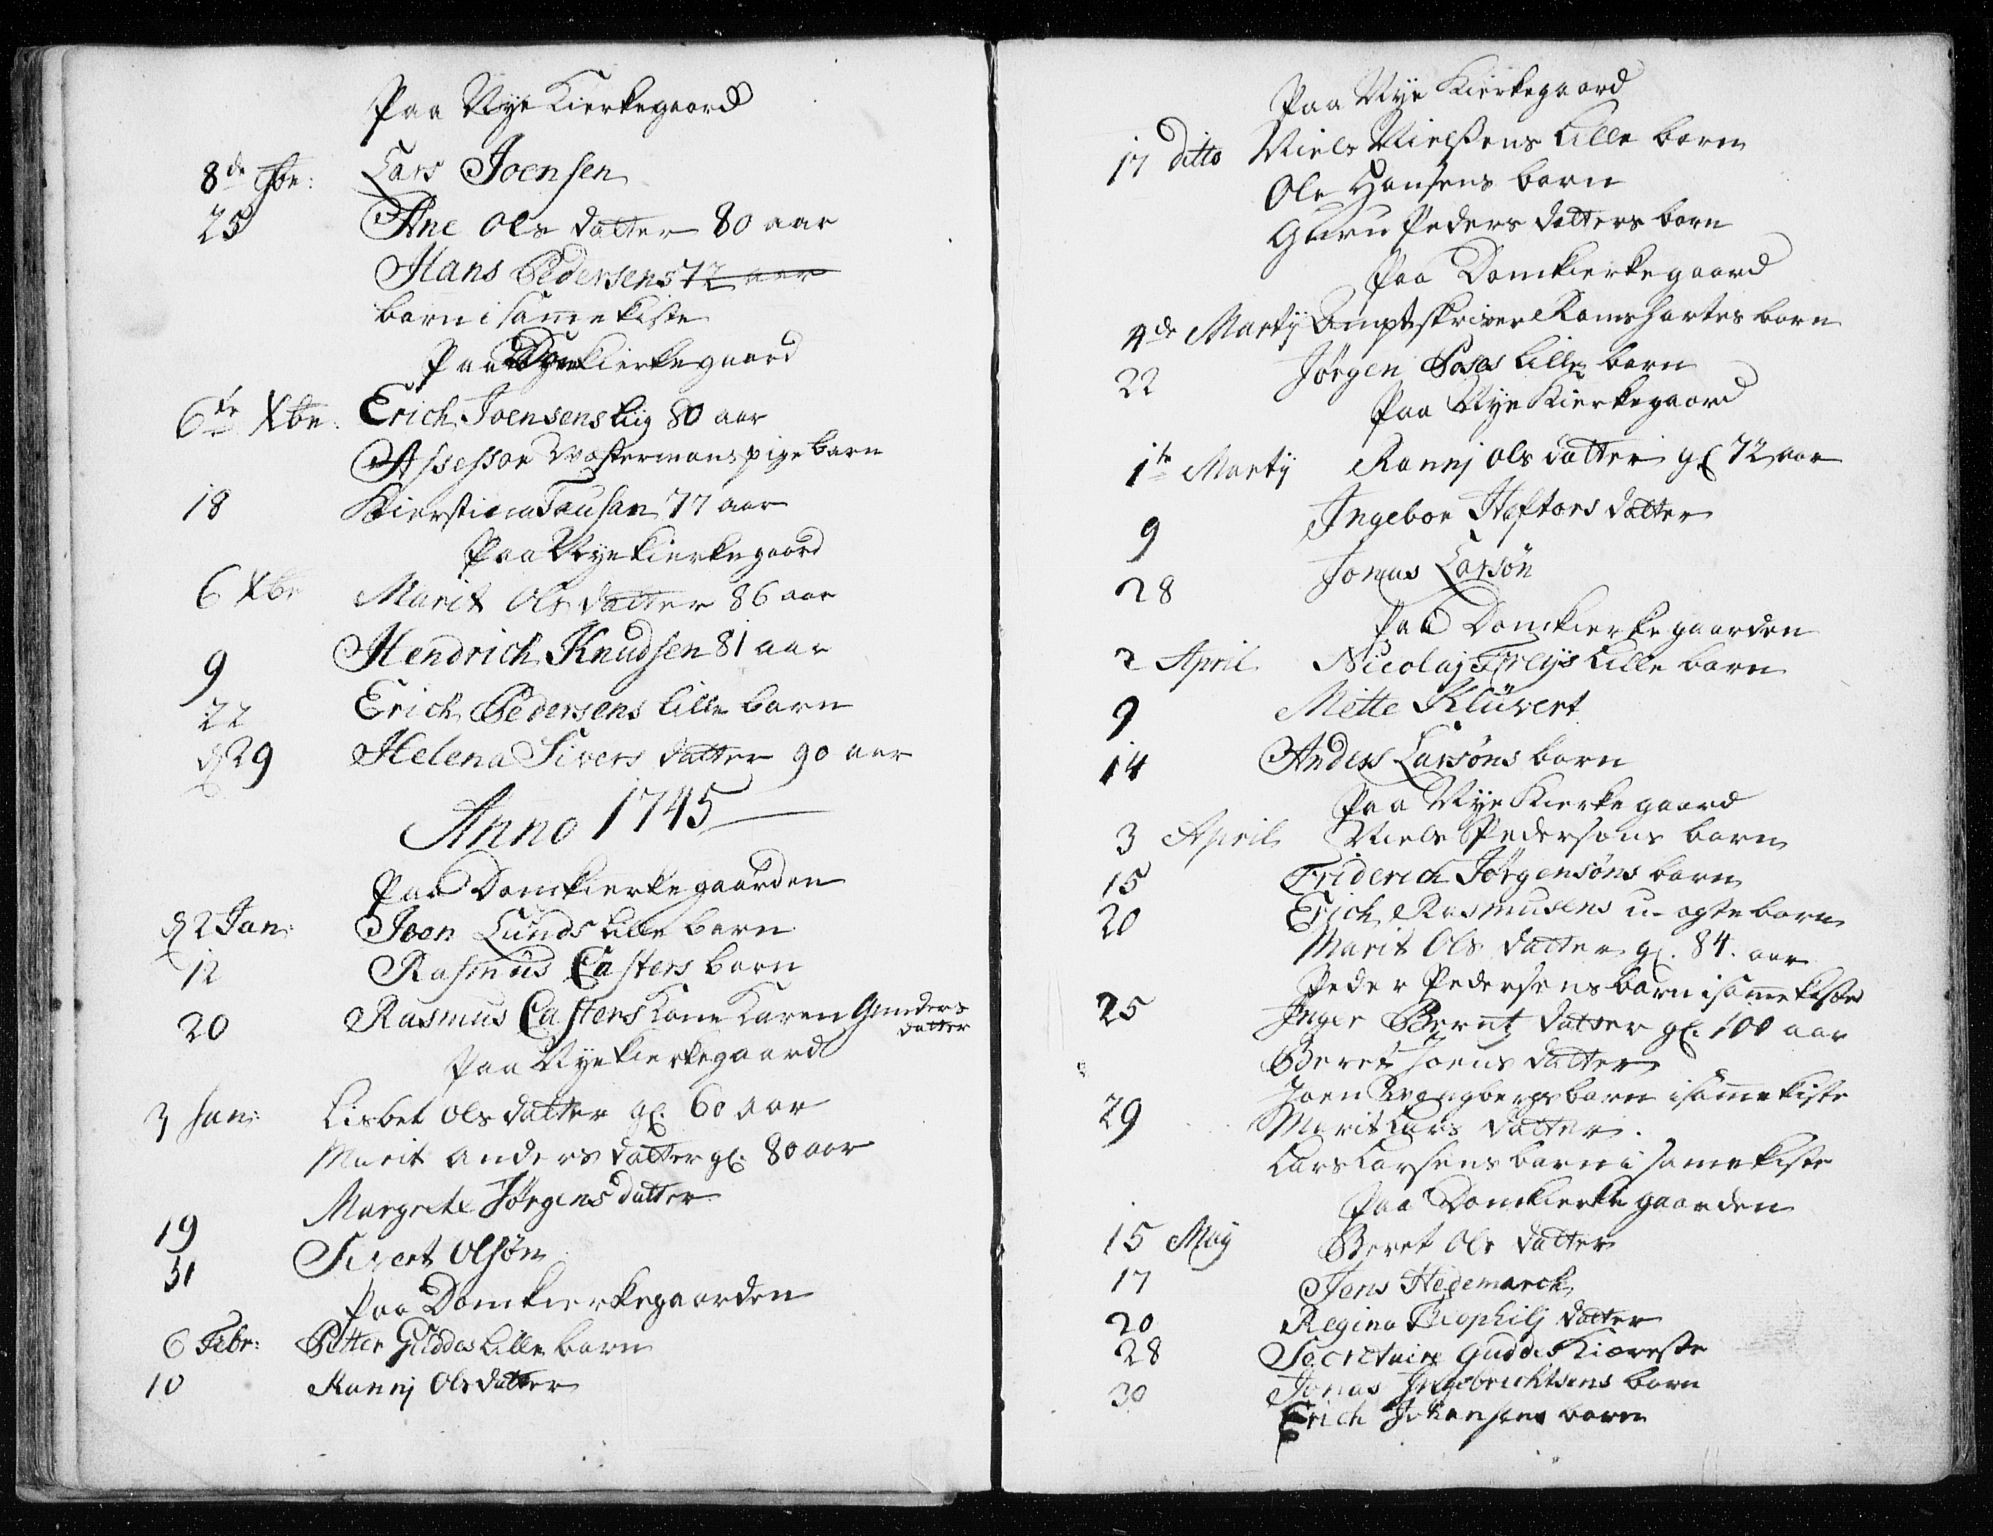 Paa Nye Kierkegaard
8de 9br: Lars Joensen
25 Ane Ols datter 80 aar
Hans Pedersens 72 aar
barn i samme kiste
Paa Kierkegaard
6te Xbr: Erich Joensens liig 80 aar
Assessor Wastermans pige barn
18 Kierstina Tausan 77 aar
Paa Nye kierkegaard
6 Xbr Marit Ols datter 86 aar
9 Hendrich Knudsen 81 aar
22 Erich Pedersens lille barn
d 29 Helena Sivers datter 90 aar
Anno 1745
Paa Domkierkegaarden
d 2 Jan: Joen Lunds lille barn
12 Rasmus Casters barn
20 Rasmus Casters Kone Karen Gunders
datter
Paa Nye kierkegaard
3 Jan: Lisbet Ols datter gl. 60 aar
Marit Anders datter gl. 80 aar
Margrete Jørgens datter
19 Sivert Olsøn
31
Paa Domkierkegaarden
6 Febr: Petter Guddes lille barn
10 Rannj Olsdatter
Paa Nye Kierkegaard
17 ditto Niels Nielsens lille barn
Ole Hansens barn
Guru Peders datters barn
Paa Domkierkegaard
4de Martij Amptskriver Ramshartes barn
22 Jørgen Poses lille barn
Paa Nye Kierkegaard
1te Martij Rannj Ols datter gl 72 aar
9 Ingebor Haftors datter
28 Jonas Larsøn
Paa Domkierkegaarden
2 April Nicolaj Freijs lille barn
9 Mette Klüvert
14 Anders Larsøns barn
Paa Nye Kierkegaard
3 April Niels Pedersøns barn
15 Friderich Jørgensøns barn
20 Erich Rasmusens u-egte barn
Marit Ols datter gl. 84 aar
Peder Pedersens barn i samme kiste
25 Inger Berntz datter gl. 100 aar
Beret Joens datter
Joen Brengbergs barn i samme kiste
29 Marit Lars datter
Lars Larsens barn i samme kiste
Paa Domkierkegaarden
15 Maij Beret Ols datter
17 Jens Hedemarck
20 Regina Theophilj datter
28 Secretaire Guddes Kiæreste
30 Jonas Ingebrichtsens barn
Erich Johansens barn